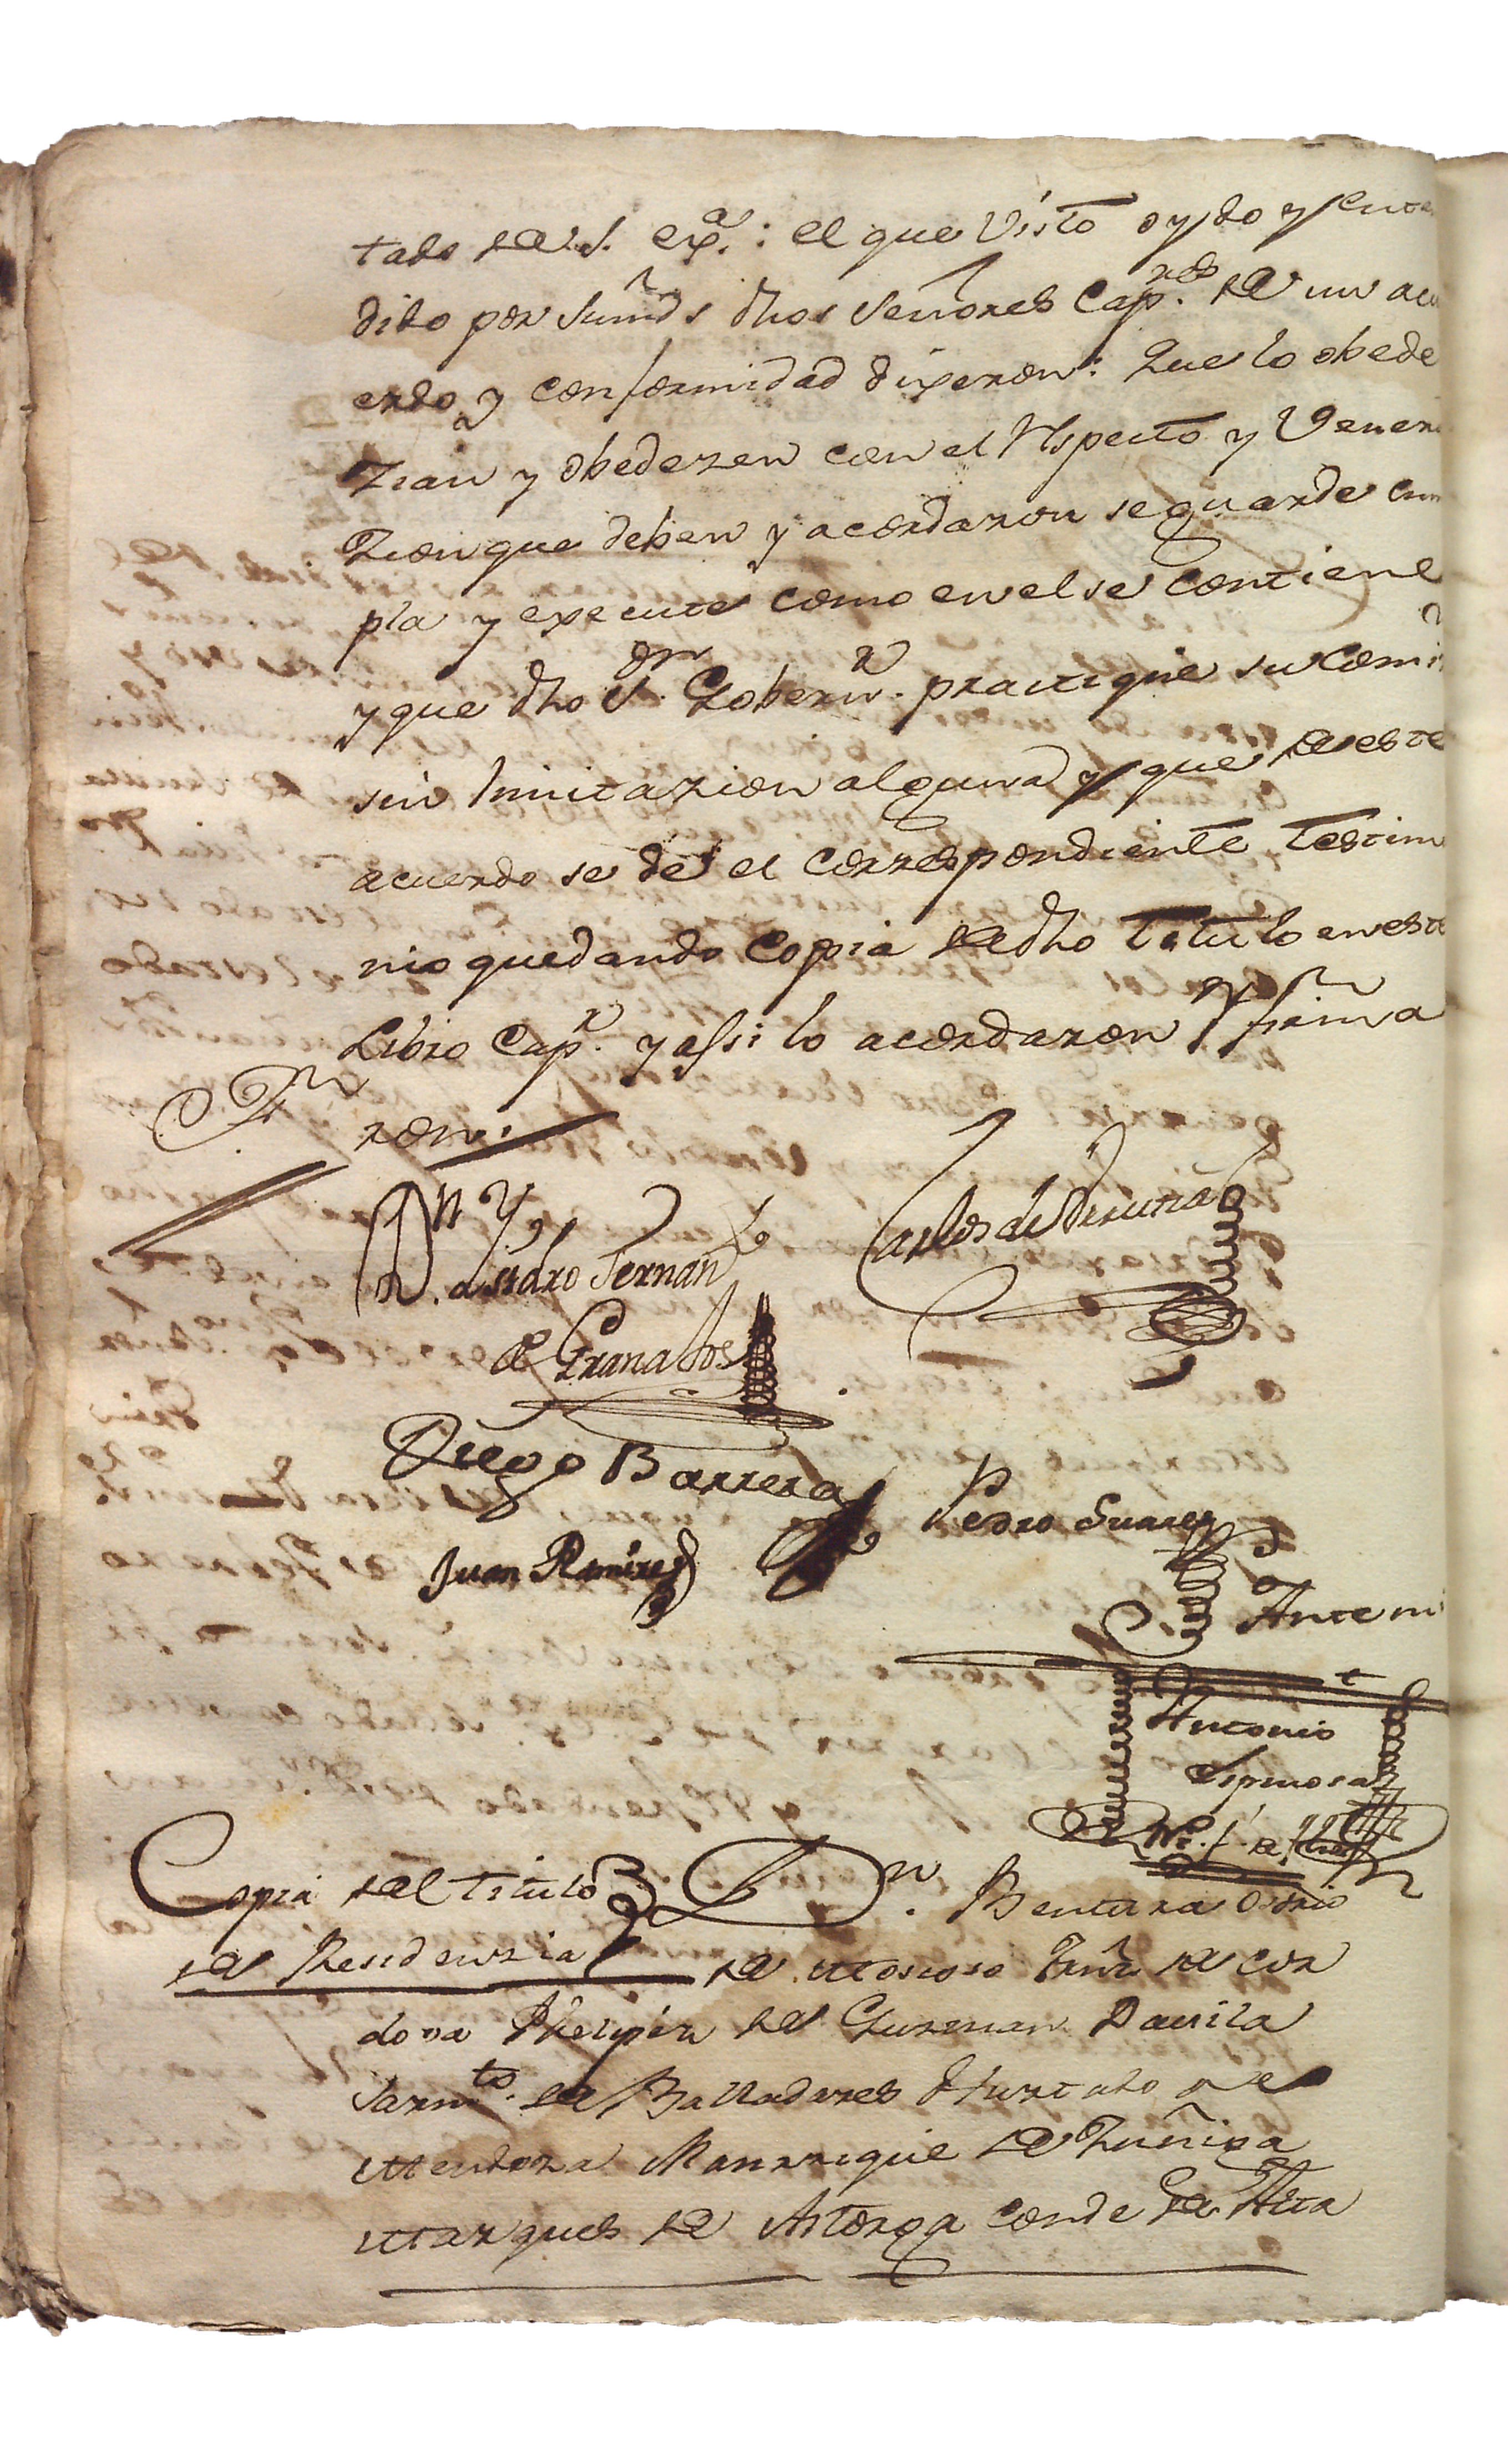 tado de S. exª.: el que Visto oydo y enten
dido por sumds dhos Señores Capres. de un acu
erdo y conformidad dixeron: Que lo obede
zian y obedezen con el Respecto y Venera
zion que deben y acordaron se guarde cum
pla y execute como en el se contiene
y que dho Sor. Gobernr. practique su Comi
sin limitazion alguna y que de este
acuerdo se dé el correspondiente testim
nio quedando Copia de dho Titulo en este
Libro Capr. y assi lo acordaron y firma
ron.
Isidro Fernan
de Granados
Carlos de
Diego Barrera
Pedro Suarez
Juan Ramirez
Ante mi
Antonio
Espinosa
Copia del titulo
de Residenzia
Dn. Bentura Osorio
de Moscoso Frnz de Cor
dova Phelipez de Guzman Davila
Sarmto. de Balladares Hurtado de
Mendoza Manrrique de Zuñiga
Marques de Astorga Conde de Alta